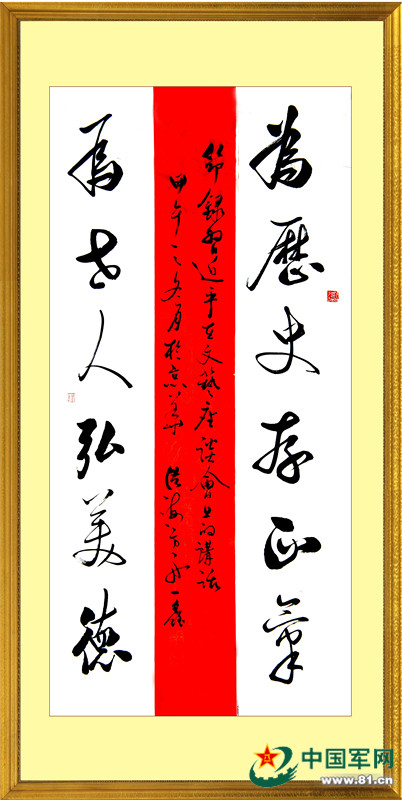 為歷史存正氣
節錄習近平在文藝座談會上的講話
甲午之冬月於京華
為世人弘美德
中国军网
www.81.cn